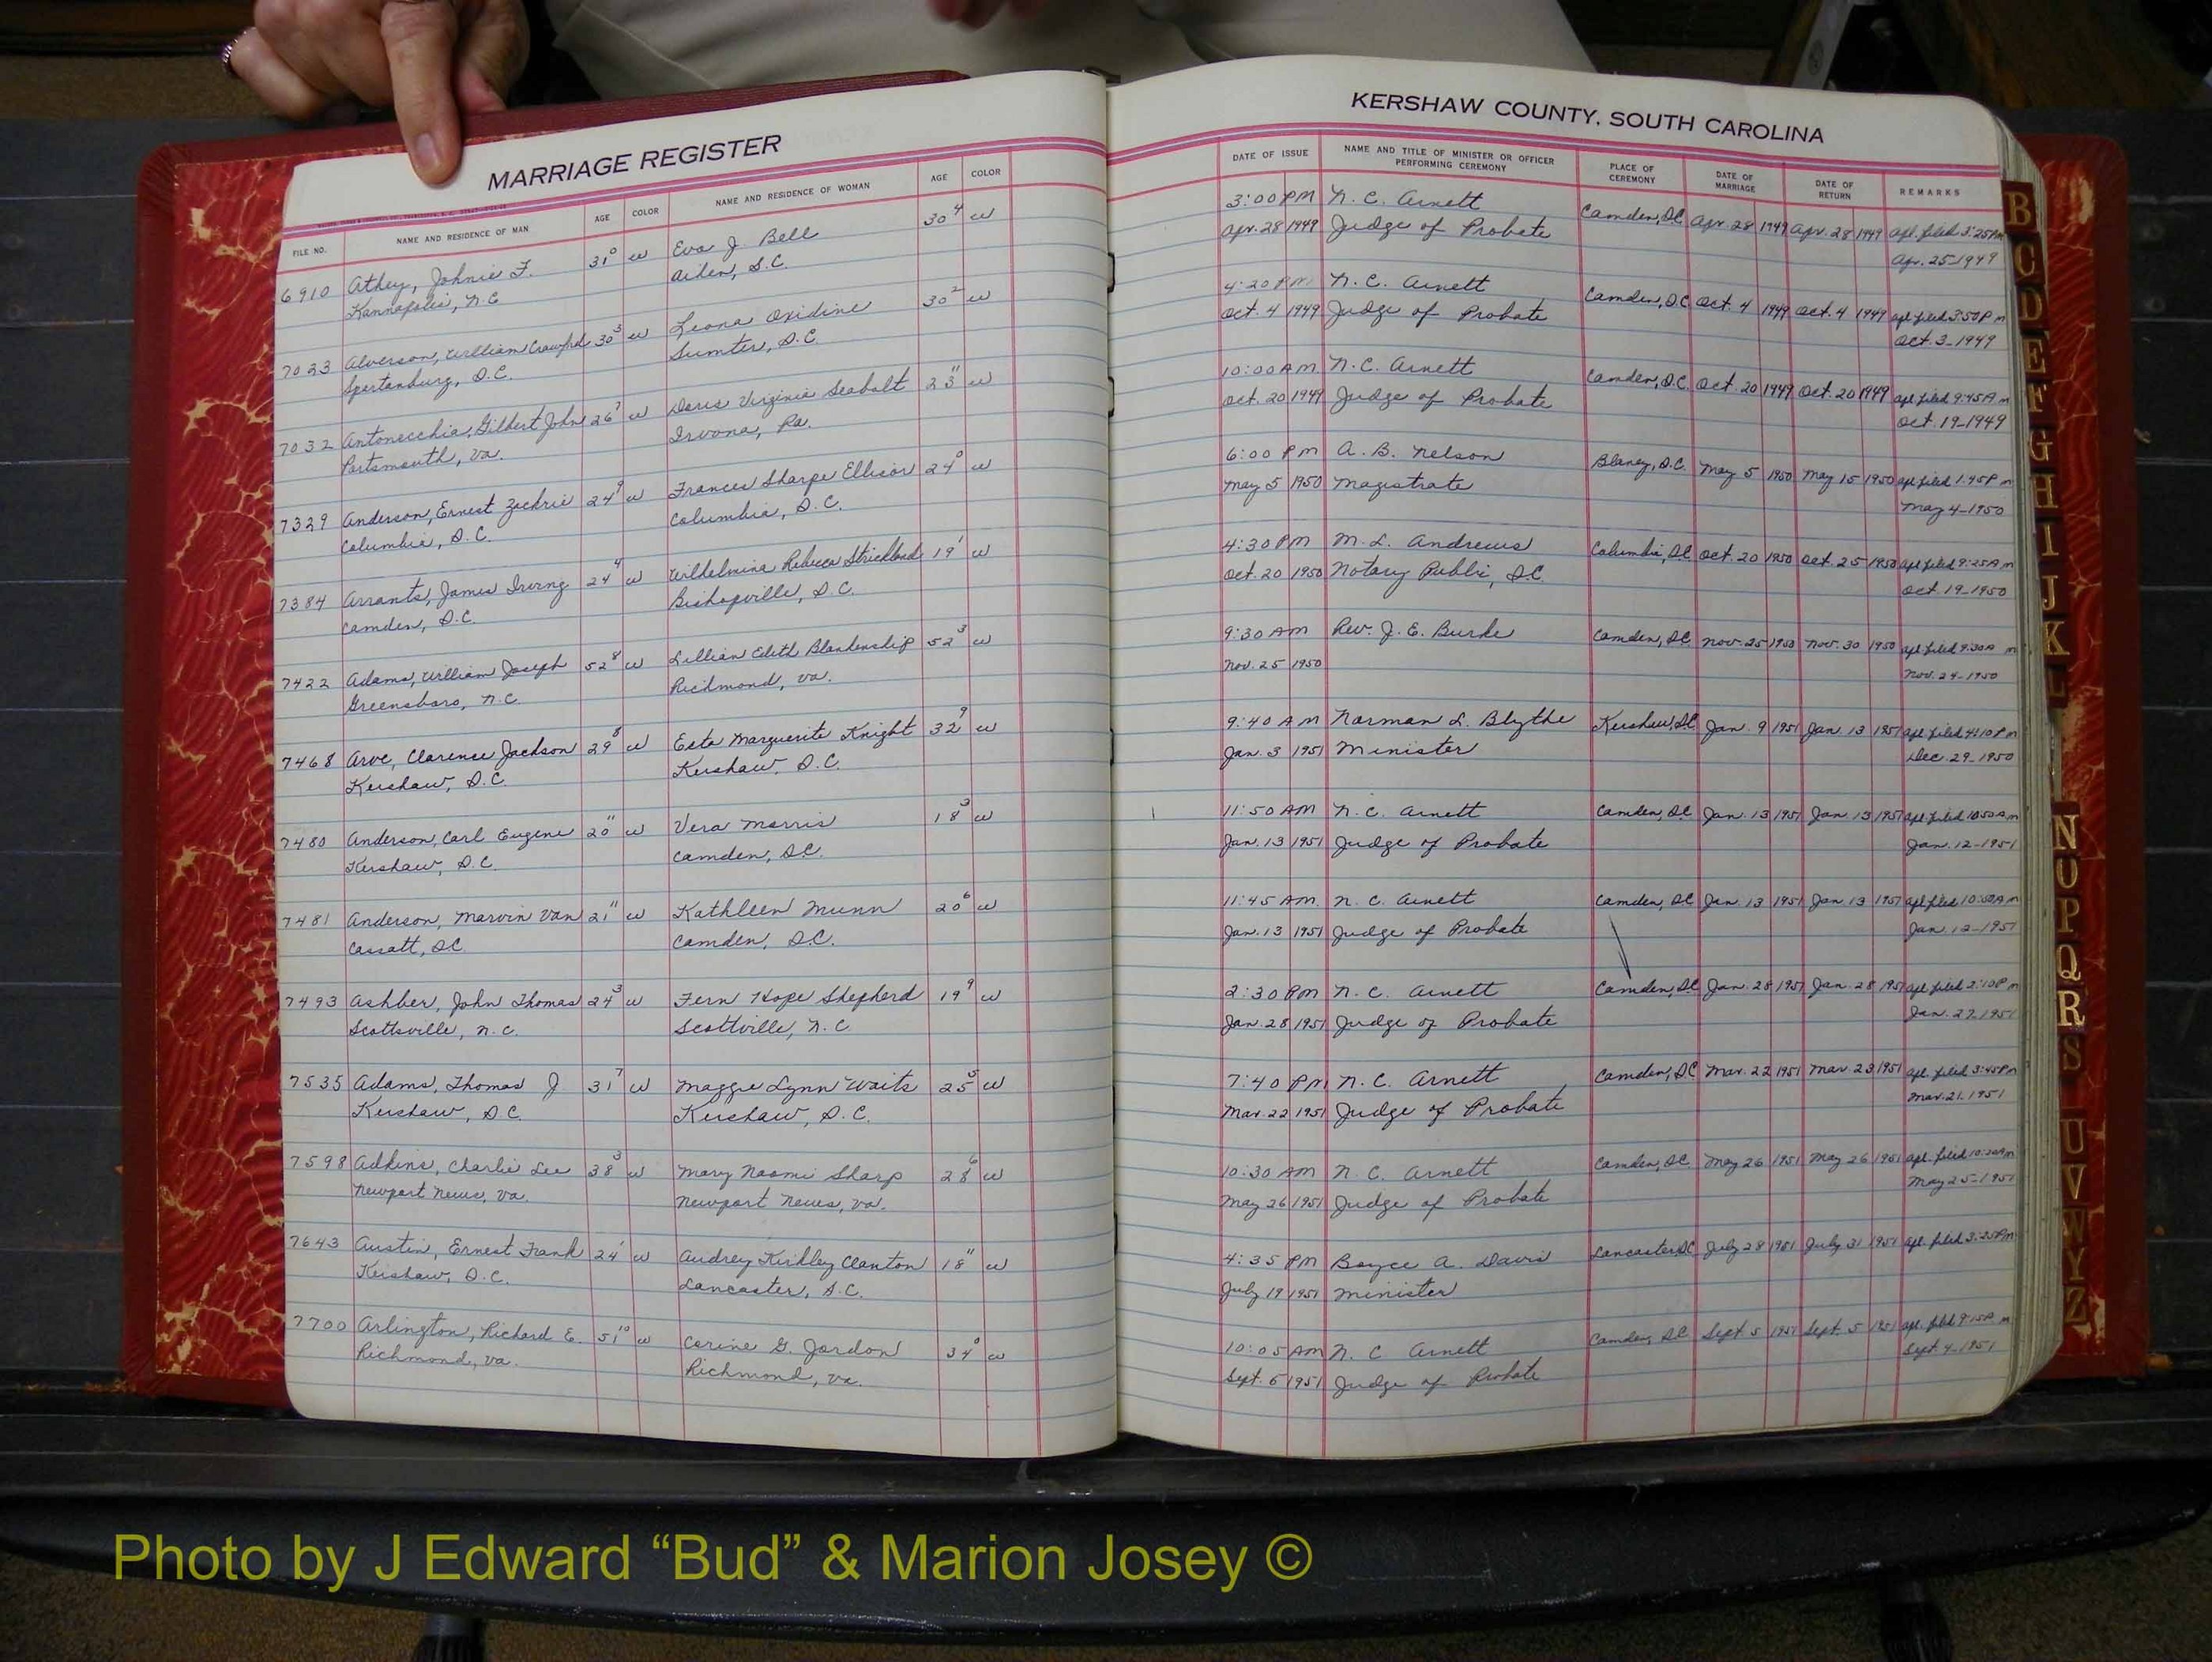 MARRIAGE REGISTER
FILE NO. NAME AND RESIDENCE OF MAN AGE COLOR NAME AND RESIDENCE OF WOMAN AGE COLOR
6910 Athey, Johnie F. 31 0 w Eva J. Bell 30 4 w
Kannapolis, N.C. Aiken, S.C.
7023 Alverson, William Crawford 30 3 w Leona Oxidine 30 2 w
Spartanburg, S.C. Sumter, S.C.
7032 Antonecchia, Gilbert John 26 7 w Doris Virginia Seabolt 23 11 w
Portsmouth, Va. Irvona, Pa.
7329 Anderson, Ernest Zachrie 24 9 w Frances Sharpe Ellisor 24 0 w
Columbia, S.C. Columbia, S.C.
7384 Arrants, James Irving 24 4 w Wilhelmina Rebecca Strickland 19 1 w
Camden, S.C. Bishopville, S.C.
7422 Adams, William Joseph 52 8 w Lillian Edith Blankenship 52 3 w
Greensboro, N.C. Richmond, Va.
7468 Arve, Clarence Jackson 29 8 w Esta Marguerite Knight 32 9 w
Kershaw, S.C. Kershaw, S.C.
7480 Anderson, Carl Eugene 20 11 w Vera Morris 18 3 w
Kershaw, S.C. Camden, S.C.
7481 Anderson, Marvin Van 21 11 w Kathleen Munn 20 6 w
Cassatt, S.C. Camden, S.C.
7493 Ashber, John Thomas 24 3 w Fern Hope Shepherd 19 9 w
Scottsville, N.C. Scottville, N.C.
7535 Adams, Thomas J 31 7 w Maggie Lynn Waits 25 5 w
Kershaw, S.C. Kershaw, S.C.
7598 Adkins, Charlie Lee 38 3 w Mary Naomi Sharp 28 6 w
Newport News, Va. Newport News, Va.
7643 Austin, Ernest Frank 24 1 w Audrey Kirkley Clanton 18 11 w
Kershaw, S.C. Lancaster, S.C.
7700 Arlington, Richard E. 51 10 w Corine G. Jordon 34 0 w
Richmond, Va. Richmond, Va.
KERSHAW COUNTY, SOUTH CAROLINA
DATE OF ISSUE NAME AND TITLE OF MINISTER OR OFFICER PERFORMING CEREMONY PLACE OF CEREMONY DATE OF MARRIAGE DATE OF RETURN REMARKS
3:00 PM N. C. Arnett Camden, S.C. Apr. 28 1949 Apr. 28 1949 apl. filed 3:25 PM
Apr. 28 1949 Judge of Probate Apr. 25-1949
4:20 PM N. C. Arnett Camden, S.C. Oct. 4 1949 Oct. 4 1949 apl. filed 3:50 P m
Oct. 4 1949 Judge of Probate Oct. 3-1949
10:00 AM N. C. Arnett Camden, S.C. Oct. 20 1949 Oct. 20 1949 apl. filed 9:45 A m
Oct. 20 1949 Judge of Probate Oct. 19-1949
6:00 Pm A. B. Nelson Blaney, S.C. May 5 1950 May 15 1950 apl. filed 1:45 P m
May 5 1950 Magistrate May 4-1950
4:30 PM M. L. Andrews Columbia, S.C. Oct. 20 1950 Oct. 25 1950 apl. filed 9:25 A m
Oct. 20 1950 Notary Public, S.C. Oct. 19-1950
9:30 AM Rev. J. E. Burke Camden, S.C. Nov. 25 1950 Nov. 30 1950 apl. filed 9:30 A m
Nov. 25 1950 Nov. 24-1950
9:40 AM Norman L. Blythe Kershaw, S.C. Jan. 9 1951 Jan. 13 1951 apl. filed 4:10 P m
Jan. 3 1951 Minister Dec. 29-1950
11:50 AM N. C. Arnett Camden, S.C. Jan. 13 1951 Jan. 13 1951 apl. filed 10:50 A m
Jan. 13 1951 Judge of Probate Jan. 12-1951
11:45 AM. N. C. Arnett Camden, S.C. Jan. 13 1951 Jan. 13 1951 apl. filed 10:50 A m
Jan. 13 1951 Judge of Probate Jan. 12-1951
2:30 PM N. C. Arnett Camden, S.C. Jan. 28 1951 Jan. 28 1951 apl. filed 2:10 P m
Jan. 28 1951 Judge of Probate Jan. 27, 1951
7:40 PM N. C. Arnett Camden, S.C. Mar. 22 1951 Mar. 23 1951 apl. filed 3:45 Pm
Mar. 22 1951 Judge of Probate Mar. 21, 1951
10:30 AM N. C. Arnett Camden, S.C. May 26 1951 May 26 1951 apl. filed 10:20 Am
May 26 1951 Judge of Probate May 25-1951
4:35 PM Boyce A. Davis Lancaster, S.C. July 28 1951 July 31 1951 apl. filed 3:25 Pm
July 19 1951 Minister
10:05 AM N. C Arnett Camden, S.C. Sept. 5 1951 Sept. 5 1951 apl. filed
Sept. 5 1951 Judge of Probate Sept. 4-1951
B
C
D
E
F
G
H
I
J
K
L
N
O
P
Q
R
S
U
V
W
Y
Z
Photo by J Edward “Bud” & Marion Josey ©